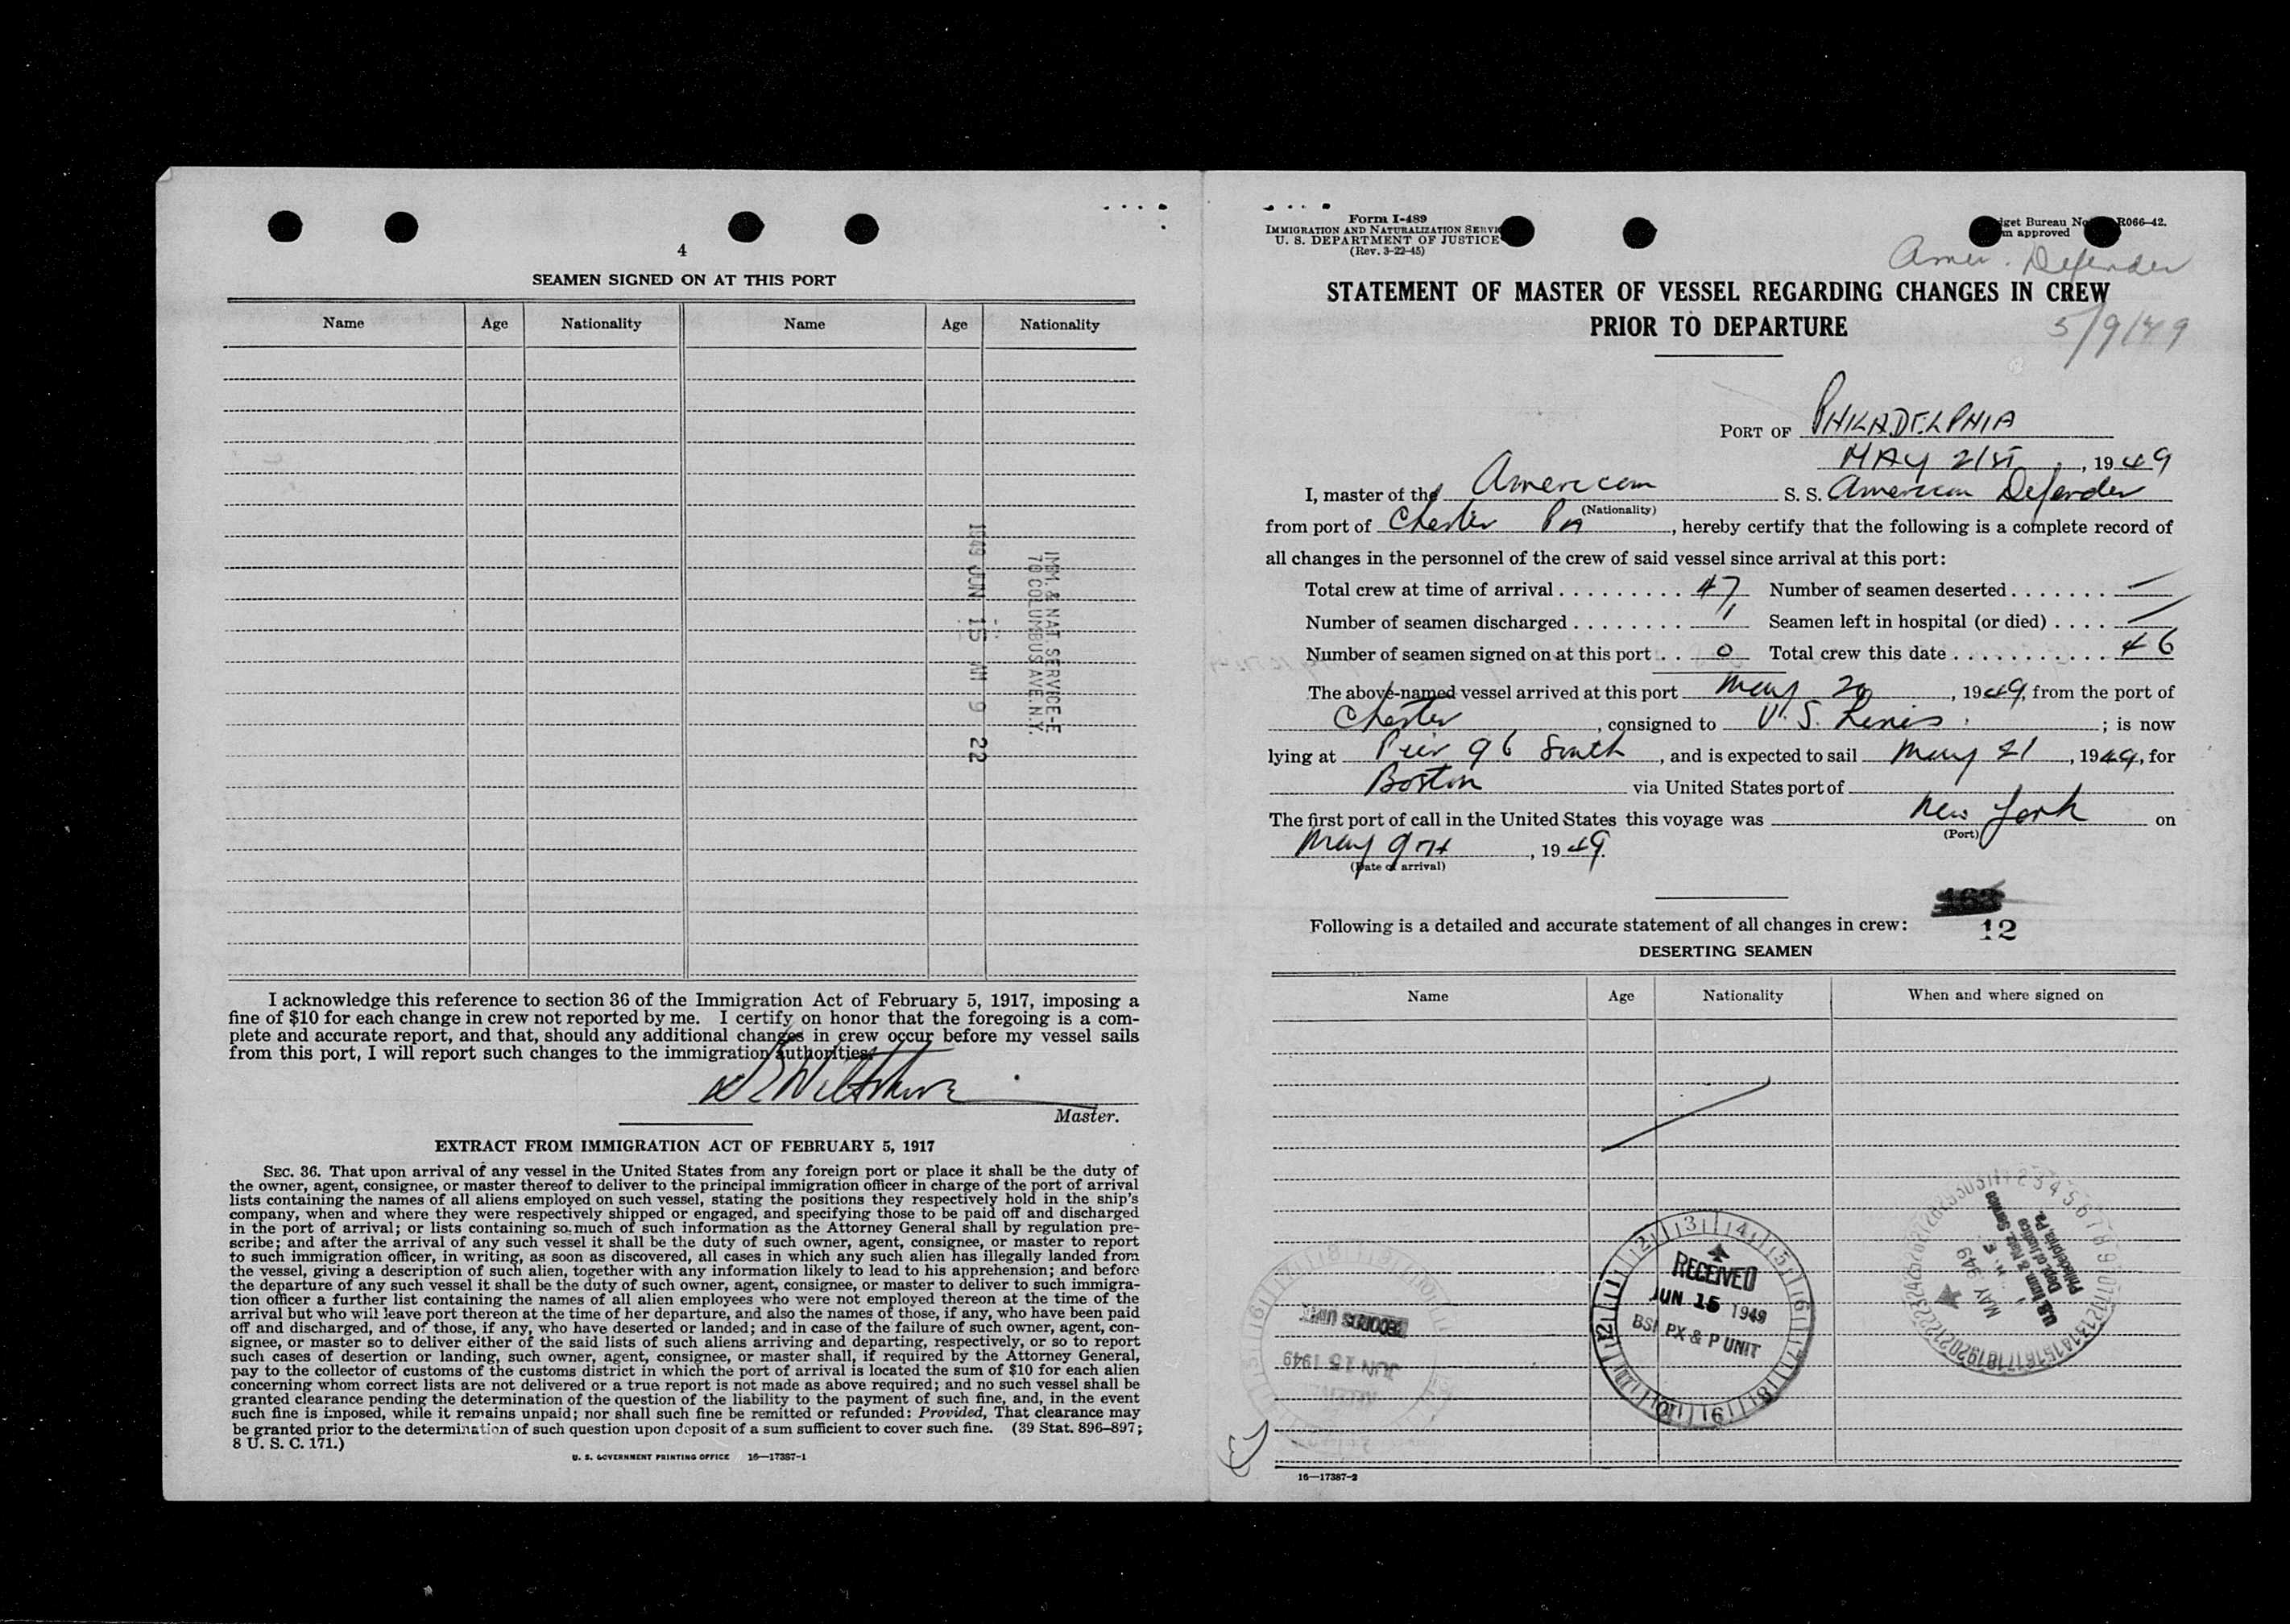 4
SEAMEN SIGNED ON AT THIS PORT
Name Age Nationality Name Age Nationality
IMM. & NAT. SERVICE-E
70 COLUMBUS AVE. N.Y.
1949 JUN 15 AM 9 22
I acknowledge this reference to section 36 of the Immigration Act of February 5, 1917, imposing a
fine of $10 for each change in crew not reported by me. I certify on honor that the foregoing is a com-
plete and accurate report, and that, should any additional changes in crew occur before my vessel sails
from this port, I will report such changes to the immigration authorities.
Master.
EXTRACT FROM IMMIGRATION ACT OF FEBRUARY 5, 1917
SEC. 36. That upon arrival of any vessel in the United States from any foreign port or place it shall be the duty of
the owner, agent, consignee, or master thereof to deliver to the principal immigration officer in charge of the port of arrival
lists containing the names of all aliens employed on such vessel, stating the positions they respectively hold in the ship's
company, when and where they were respectively shipped or engaged, and specifying those to be paid off and discharged
in the port of arrival; or lists containing so much of such information as the Attorney General shall by regulation pre-
scribe; and after the arrival of any such vessel it shall be the duty of such owner, agent, consignee, or master to report
to such immigration officer, in writing, as soon as discovered, all cases in which any such alien has illegally landed from
the vessel, giving a description of such alien, together with any information likely to lead to his apprehension; and before
the departure of any such vessel it shall be the duty of such owner, agent, consignee, or master to deliver to such immigra-
tion officer a further list containing the names of all alien employees who were not employed thereon at the time of the
arrival but who will leave port thereon at the time of her departure, and also the names of those, if any, who have been paid
off and discharged, and of those, if any, who have deserted or landed; and in case of the failure of such owner, agent, con-
signee, or master so to deliver either of the said lists of such aliens arriving and departing, respectively, or so to report
such cases of desertion or landing, such owner, agent, consignee, or master shall, if required by the Attorney General,
pay to the collector of customs of the customs district in which the port of arrival is located the sum of $10 for each alien
concerning whom correct lists are not delivered or a true report is not made as above required; and no such vessel shall be
granted clearance pending the determination of the question of the liability to the payment of such fine, and, in the event
such fine is imposed, while it remains unpaid; nor shall such fine be remitted or refunded: Provided, That clearance may
be granted prior to the determination of such question upon deposit of a sum sufficient to cover such fine. (39 Stat. 896–897;
8 U. S. C. 171.)
U. S. GOVERNMENT PRINTING OFFICE 16—17387-1
Form I-489
IMMIGRATION AND NATURALIZATION SERVI
U. S. DEPARTMENT OF JUSTICE
(Rev. 3-22-45)
get Bureau No. R066-42.
m approved
Amer. Defender
5/9/49
STATEMENT OF MASTER OF VESSEL REGARDING CHANGES IN CREW
PRIOR TO DEPARTURE
PORT OF PHILADELPHIA
MAY 21ST, 1949
I, master of the American S. S. American Defender
(Nationality)
from port of Chester PA, hereby certify that the following is a complete record of
all changes in the personnel of the crew of said vessel since arrival at this port:
Total crew at time of arrival . . . . . . . . . 47 Number of seamen deserted . . . . . . . —
Number of seamen discharged . . . . . . . 1 Seamen left in hospital (or died) . . . . —
Number of seamen signed on at this port . . 0 Total crew this date . . . . . . . . . . . 46
The above-named vessel arrived at this port May 20, 1949, from the port of
Chester, consigned to U. S. Lines; is now
lying at Pier 96 South, and is expected to sail May 21, 1949, for
Boston via United States port of
The first port of call in the United States this voyage was New York on
(Port)
May 9TH, 1949.
(Date of arrival)
12
Following is a detailed and accurate statement of all changes in crew:
DESERTING SEAMEN
Name Age Nationality When and where signed on
RECEIVED
JUN 15 1949
BSI PX & P UNIT
RECORDS UNIT
JUN 15 1949
U.S. Imm. & Natz. Service
Dept. of Justice
Philadelphia, Pa.
MAY 949
16—17387-2